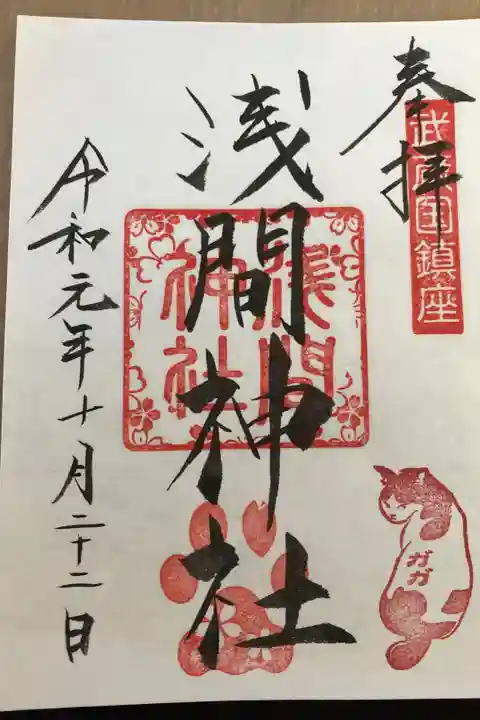 奉拝
武蔵国鎮座
浅間神社
浅間
神社
令和元年十月二十二日
ガガ